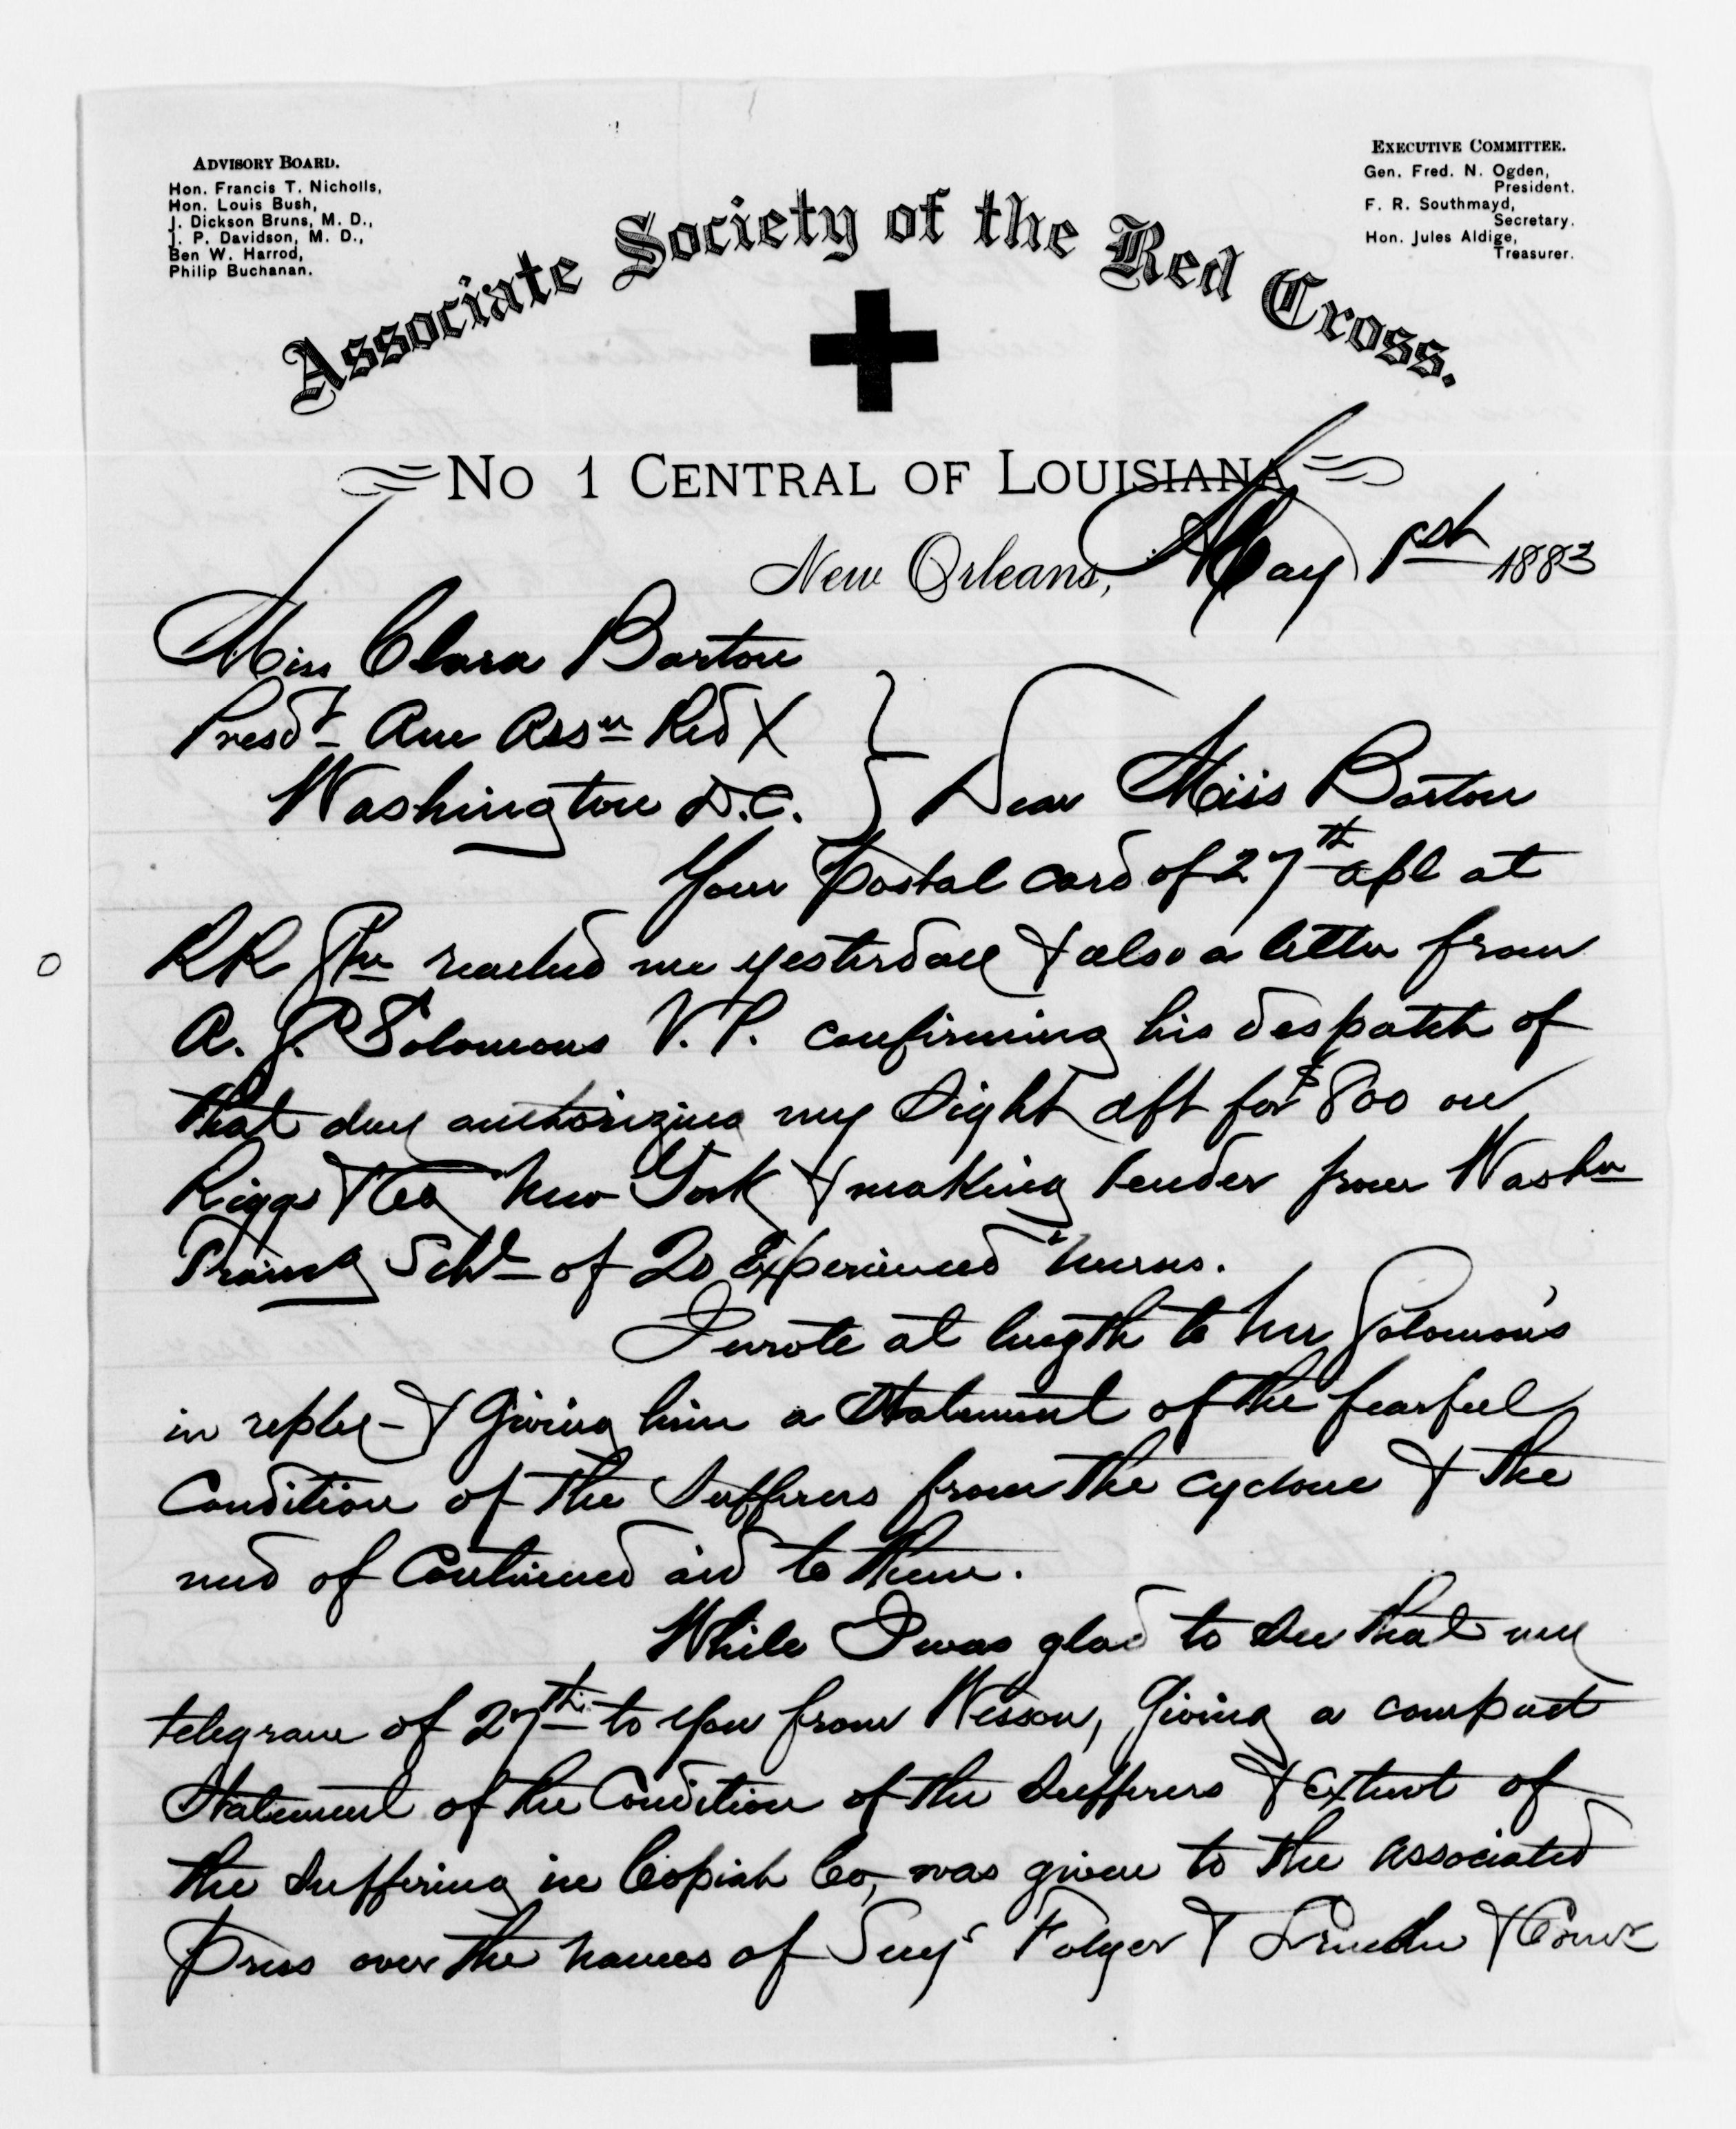 ADVISORY BOARD.
Hon. Francis T. Nicholls,
Hon. Louis Bush,
J. Dickson Bruns, M. D.,
J. P. Davidson, M. D.,
Ben W. Harrod,
Philip Buchanan.
EXECUTIVE COMMITTEE.
Gen. Fred. N. Ogden,
President.
F. R. Southmayd,
Secretary.
Hon. Jules Aldige,
Treasurer.
Associate Society of the Red Cross.
No 1 CENTRAL OF LOUISIANA
New Orleans, May 1st 1883
Miss Clara Barton
Presdt Am Assn Red X
Washington D.C. } Dear Miss Barton
Your Postal card of 27th apl at
RR reached me yesterday & also a letter from
A. S. Solomons V. P. confirming his despatch of
that day authorizing my Sight dft for $800 on
Riggs & Co New York & making tender from Washn
Traing Schl of 20 Experienced nurses.
I wrote at length to Mr Solomons
in reply - & Giving him a Statement of the fearful
Condition of the Sufferers from the cyclone & the
need of Continued aid to them.
While I was glad to see that my
telegram of 27th to you from Wesson, Giving a compact
Statement of the Condition of the Sufferers & extent of
the Suffering in Copiah Co, was given to the associated
Press over the names of Secys Folger & Lincoln &